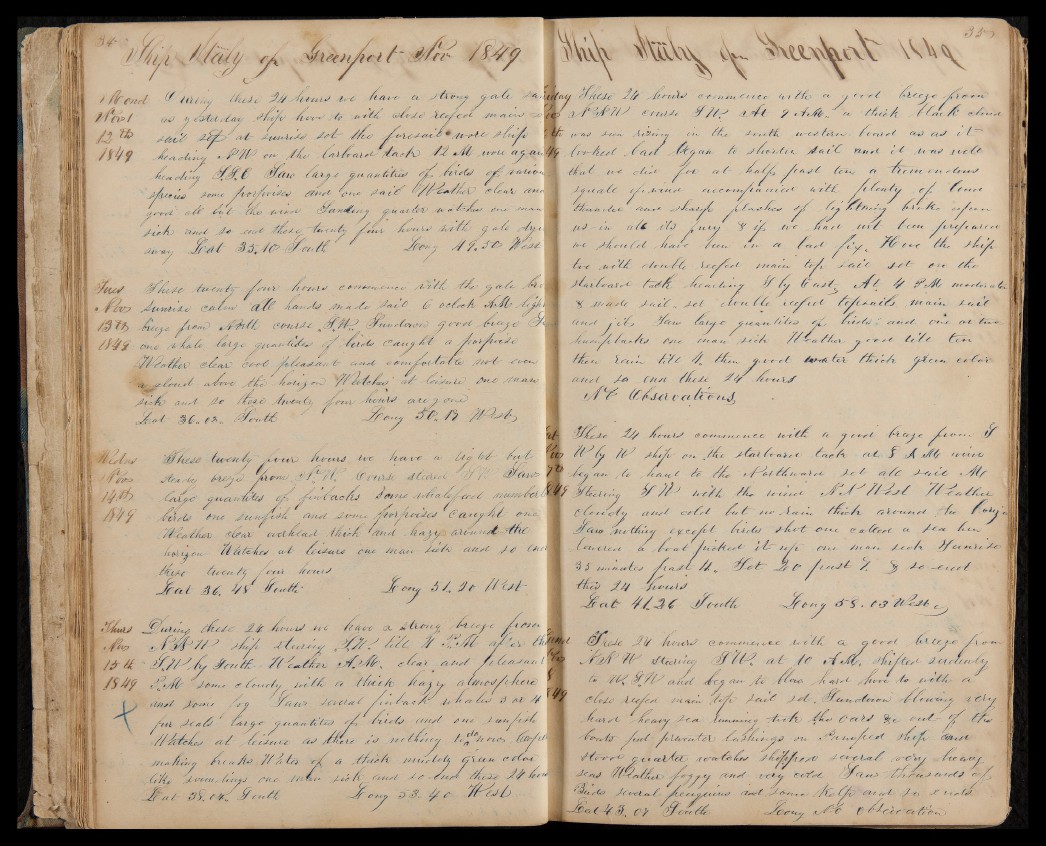 34
Ship Italy of Greenport Nov 1849
Mond During these 24 hours we have a strong gale same
Nov as yesterday ship hove to with close reefed main
12th sail set at sunrise set the foresail wore ship
1849 heading NW on the larboard tack 12 M wore again
heading SSE Saw large quantities of birds of various
species some porpoises and one sail Weather clear and
good all but the wind Standing quarter watches one man
sick and so end these twenty four hours with gale dying
away Lat 35.10 South Long 49.50 West
Tues These twenty four hours commence with the gale
Nov Sunrise calm all hands made sail 6 oclock AM light
13th breeze from North course SW. Sundown good breeze Saw
1849 one whale large quantities of birds caught a porpoise
Weather clear cool pleasant and comfortable not even
a cloud above the horizon Watches at leisure one man
sick and so these twenty four hours are gone
Lat 36.02. South Long 50.13 West
Wednes These twenty four hours we have a light but
Nov steady breeze from N.W. Course steered SW Saw
14th large quantities of finbacks some whalefeed number
1849 birds one sunfish and some porpoises caught one
Weather clear overhead thick and hazy around the
horizon Watches at leisure one man sick and so end
these twenty four hours
Lat 36.48 South Long 51.20 West
Thurs During these 24 hours we have a strong breeze from
Nov NNW ship steering SW. till 4 P.M after this
15th SW by South. Weather A.M. clear and pleasant
1849 P.M some cloudy with a thick hazy atmosphere
and some fog Saw several finback whales 3 or 4
fur seals large quantities of birds and one sunfish
Watches at leisure as there is nothing to do now except
making breaches Water of a thick muddy green color
like soundings one man sick and so end these 24 hours
Lat 38.04. South Long 53.40 West
35
Ship Italy of Greenport 1849
These 24 hours commence with a good breeze from
NNW course SW. At 9 A.M. a thick black cloud
was seen rising in the south western board as as it
looked bad began to shorten sail and it was well
that we did for at half past ten a tremendous
squall of wind accompanied with plenty of loud
thunder and sharp flashes of lightning broke upon
us in all its fury & if we had not been prepared
we should have been in a bad fix. Hove the ship
too with double reefed main top sail set on the
starboard tack heading S by East. At 4 P.M moderate
& made sail set double reefed topsails main sail
and jib Saw large quantities of birds and one or two
humpbacks one man sick Weather good till ten
then rain till 4 then good water thick green color
and so end these 24 hours
No Observations
These 24 hours commence with a good breeze from S
W by W ship on the starboard tack at 8 A M wind
began to haul to the Northward set all sail M
Steering SW with the wind NNWest Weather
cloudy and cold but no rain thick around the
Saw nothing except birds shot one called a sea hen
lowered a boat picked it up one man sick Sunrise
35 minutes past 4. Set 20 past 7 & so end
this 24 hours
Lat 41.26 South Long 58.03 West
These 24 hours commence with a good breeze from
NNW steering SW. at 10 A.M. shifted suddenly
to W.SW and began to blow hard hove to with a
close reefed main top sail set. Sundown blowing very
hard heavy sea running took the oars &c out of the
boats put preventer lashings on Ramped ship and
stood quarter watches shipped several very heavy
seas Weather foggy and very cold Saw thousands of
Birds several penguins and some Kelp and so ends
Lat 43.07 South Long No observation